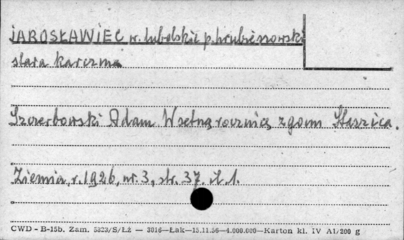 JAROSŁAWIEC w. lubelskie p. hrubieszowski
stara karczma
Szczerbowski Adam W setną rocznicę zgonu Staszica.
Ziemia, r. 1926, nr. 3, str. 37. il. 1.
CWD - B-15b. Zam. 5323/S/Łż — 2016—Łak—13.11.56—4.000.000—Karton kl. IV A1/200 g